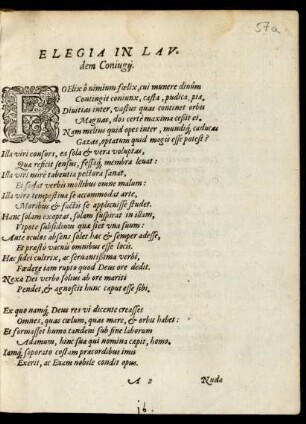 57a
ELEGIA IN LAV-
dem Coniugij.
FOElix ô nimium fœlix, cui munere diuûm
Contingit coniunx, casta, pudica, pia,
Diuitias inter, vastus quas continet orbis
Magnas, dos certè maxima cessit ei.
Nam melius quid opes inter, mundiq́; caducas
Gazas, optatum quid magis esse potest?
Illa viri consors, ea sola & vera voluptas,
Qua reficit sensus, fessáq́; membra leuat:
Illa viri mirè tabentia pectora sanat,
Et sedat verbis mollibus omne malum:
Illa viro tempestiua se accommodat arte,
Moribus & factis se applicuisse studet.
Hanc solam exoptas, solam suspirat in illam,
Vtpote subsidium quæ siet vna suum:
Ante oculos absens solet hæc & semper adesse,
Et præstò vacuis omnibus esse locis.
Hæc fidei cultrix, ac seruantissima verbi,
Fœdere iam rupto quod Deus ore dedit.
Nexa Dei verbo solius ab ore mariti
Pendet, & agnoscit hunc caput esse sibi.
Ex quo namq́; Deus res vi dicente creasset
Omnes, quas cœlum, quas mare, & orbis habet:
Et formasset humo tandem sub fine laborum
Adamum, hinc sua qui nomina capit, homo,
Iamq́; soporato costam præcordibus imis
Exerit, ac Euam nobile condit opus.
A 2
Nuda
j6.